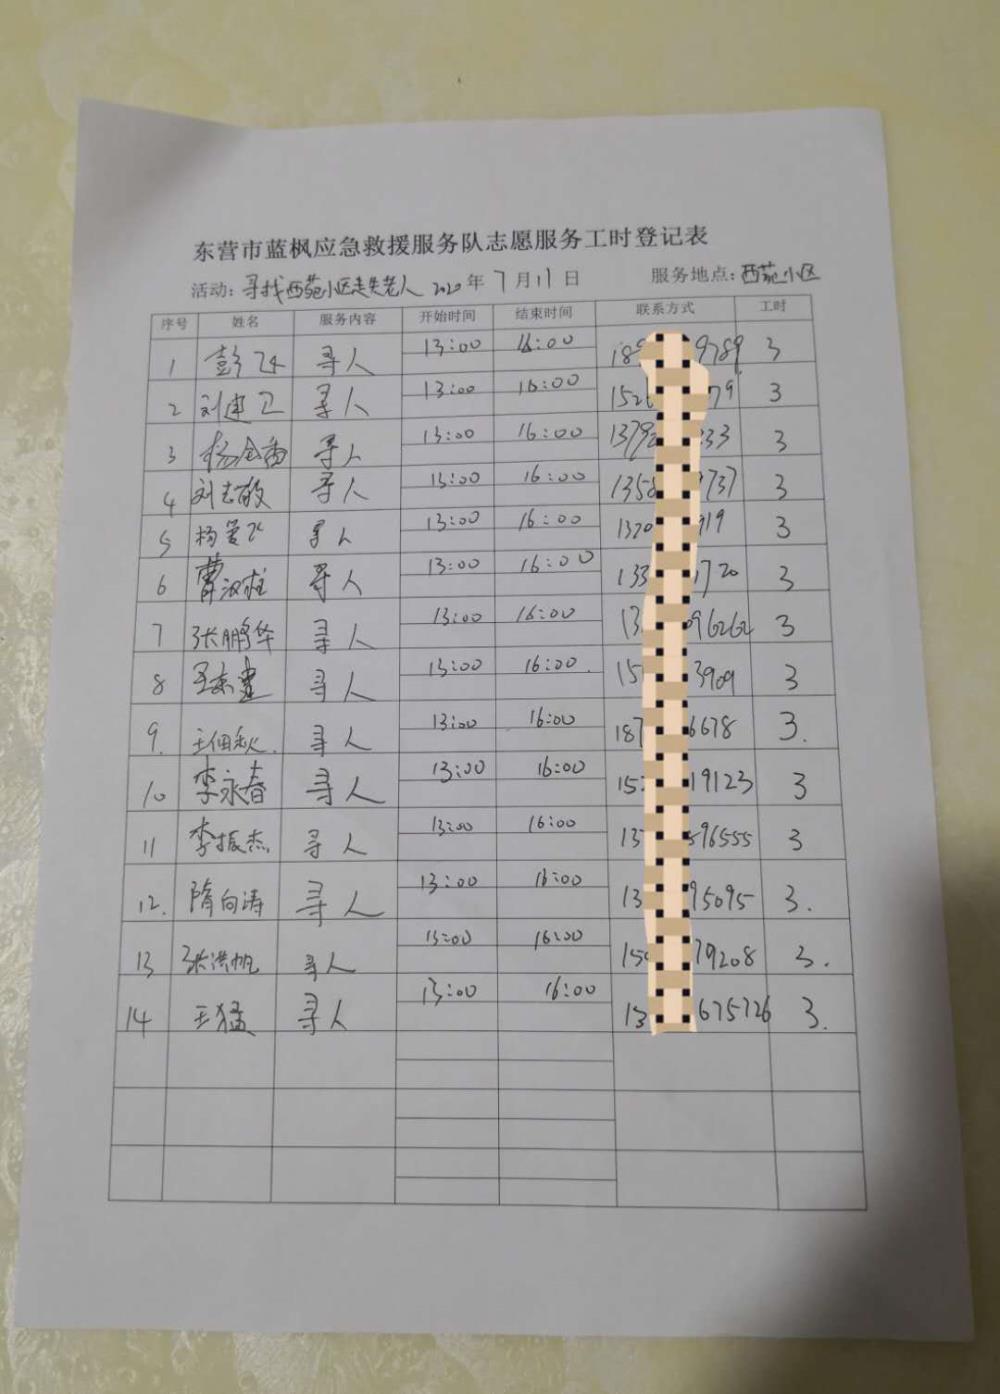 东营市蓝枫应急救援服务队志愿服务工时登记表
活动：寻找西苑小区走失老人 2020年7月11日 服务地点：西苑小区
序号 姓名 服务内容 开始时间 结束时间 联系方式 工时
1 彭飞 寻人 13:00 16:00 189 9789 3
2 刘建卫 寻人 13:00 16:00 152 79 3
3 杨会香 寻人 13:00 16:00 1379 233 3
4 刘志敏 寻人 13:00 16:00 1358 737 3
5 杨爱 寻人 13:00 16:00 1320 919 3
6 曹汉柱 寻人 13:00 16:00 133 1720 3
7 张鹏华 寻人 13:00 16:00 13 096262 3
8 寻人 13:00 16:00. 15 3909 3
9. 王佃秋. 寻人 13:00 16:00 187 6678 3.
10 李永春 寻人 13:00 16:00 152 19123 3
11 李振杰 寻人 13:00 16:00 13 596555 3
12. 隋向涛 寻人 13:00 16:00 13 95095 3.
13 张洪帆 寻人 13:00 16:00 150 79208 3.
14 王猛 寻人 13:00 16:00 13 675726 3.